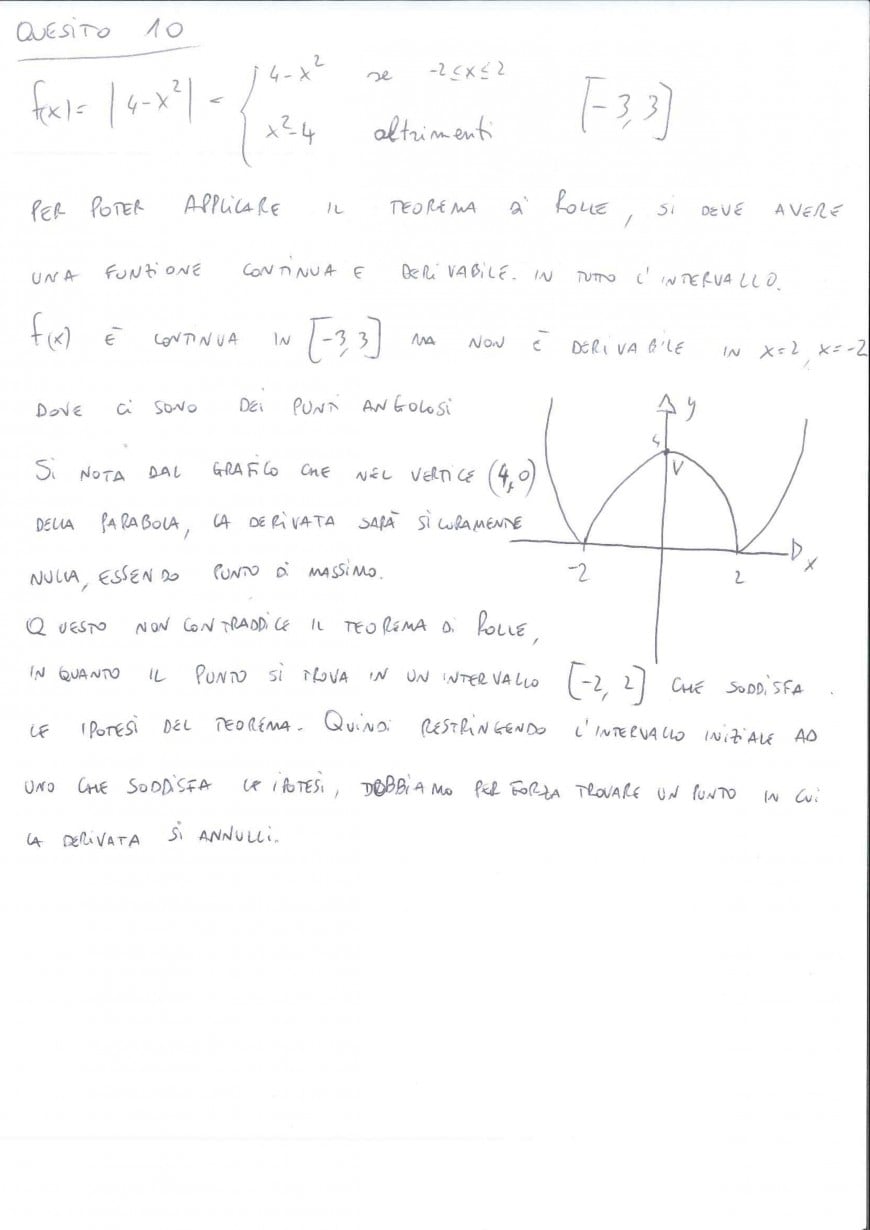 QUESITO 10
f(x) = |4-x²| = { 4-x² se -2≤x≤2 [-3,3]
x²-4 altrimenti
PER POTER APPLICARE IL TEOREMA DI ROLLE, SI DEVE AVERE
UNA FUNZIONE CONTINUA E DERIVABILE. IN TUTTO L'INTERVALLO.
f(x) È CONTINUA IN [-3,3] MA NON È DERIVABILE IN X=2, X=-2
DOVE CI SONO DEI PUNTI ANGOLOSI
SI NOTA DAL GRAFICO CHE NEL VERTICE (4,0)
DELLA PARABOLA, LA DERIVATA SARÀ SICURAMENTE
NULLA, ESSENDO PUNTO DI MASSIMO.
y
4
V
-2
2
x
QUESTO NON CONTRADDICE IL TEOREMA DI ROLLE,
IN QUANTO IL PUNTO SI TROVA IN UN INTERVALLO [-2, 2] CHE SODDISFA
LE IPOTESI DEL TEOREMA. QUINDI RESTRINGENDO L'INTERVALLO INIZIALE AD
UNO CHE SODDISFA LE IPOTESI, DOBBIAMO PER FORZA TROVARE UN PUNTO IN CUI
LA DERIVATA SI ANNULLI.